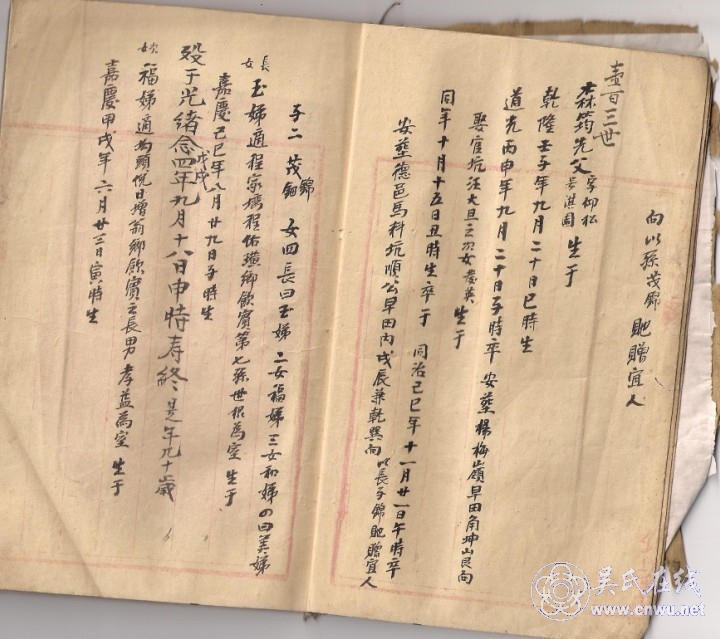 向 以孫茂錦 貤贈宜人
壹百三世
森筠先父 字仰松 号淇園 生于
乾隆壬子年九月二十日巳時生
道光丙申年九月二十日子時卒 安塟楊梅嶺早田角坤山艮向
娶官坑汪大旦之次女農英 生于
同年十月十五日丑時生卒于 同治己巳年十一月廿一日午時卒
安塟德邑馬料坑順公早田丙戌辰兼乾巽向 以長子錦貤贈宜人
子二 茂錦 茂鈿 女四長曰玉娣 二女福娣 三女和娣 の曰美娣
長女 玉娣適程家塝程佑璜鄉飲賓第七孫世根為室 生于
嘉慶己巳年八月廿九日子時生
歿于光緒念四年戊戌九月十八日申時寿終 是年九十歲
次女 福娣適坞頭倪日增翁鄉飲賓之長男孝益為室 生于
嘉慶甲戌年六月廿三日寅時生
吳氏在线
www.cnwu.net